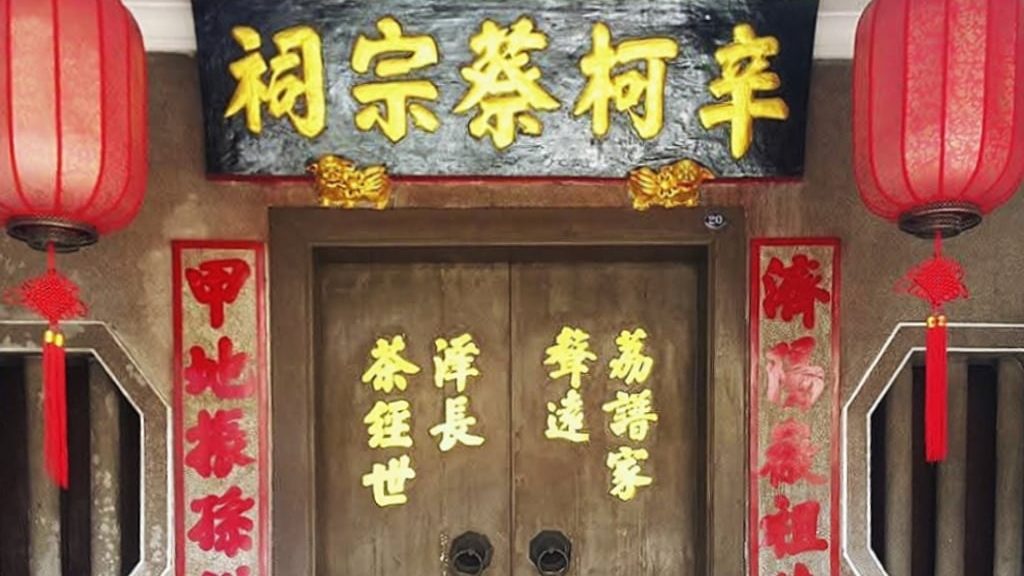 辛柯蔡宗祠
20
濟陽
祖
荔譜家
聲遠
茶經世
澤長
甲地振孫